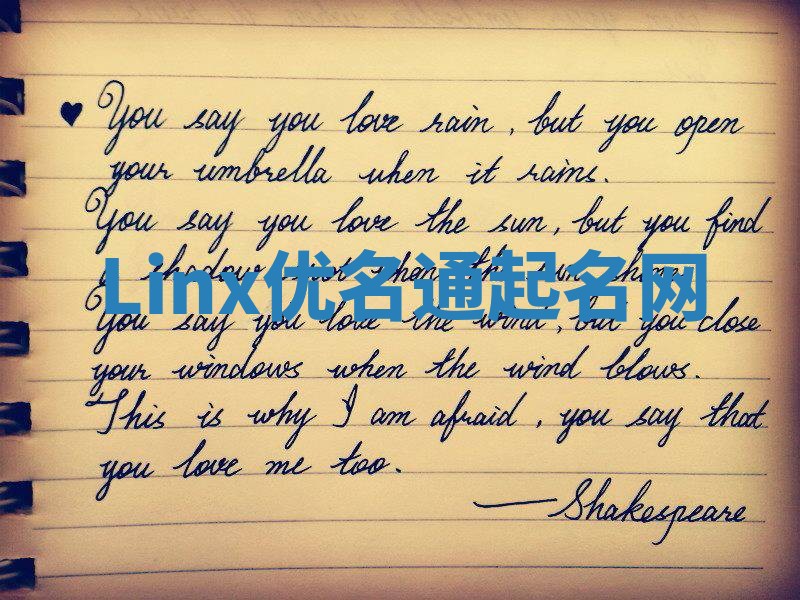 ♥ You say you love rain, but you open
your umbrella when it rains.
You say you love the sun, but you find
a shadow spot when the sun shines.
Linx优名通起名网
You say you love the wind, but you close
your windows when the wind blows.
This is why I am afraid, you say that
you love me too.
—Shakespeare